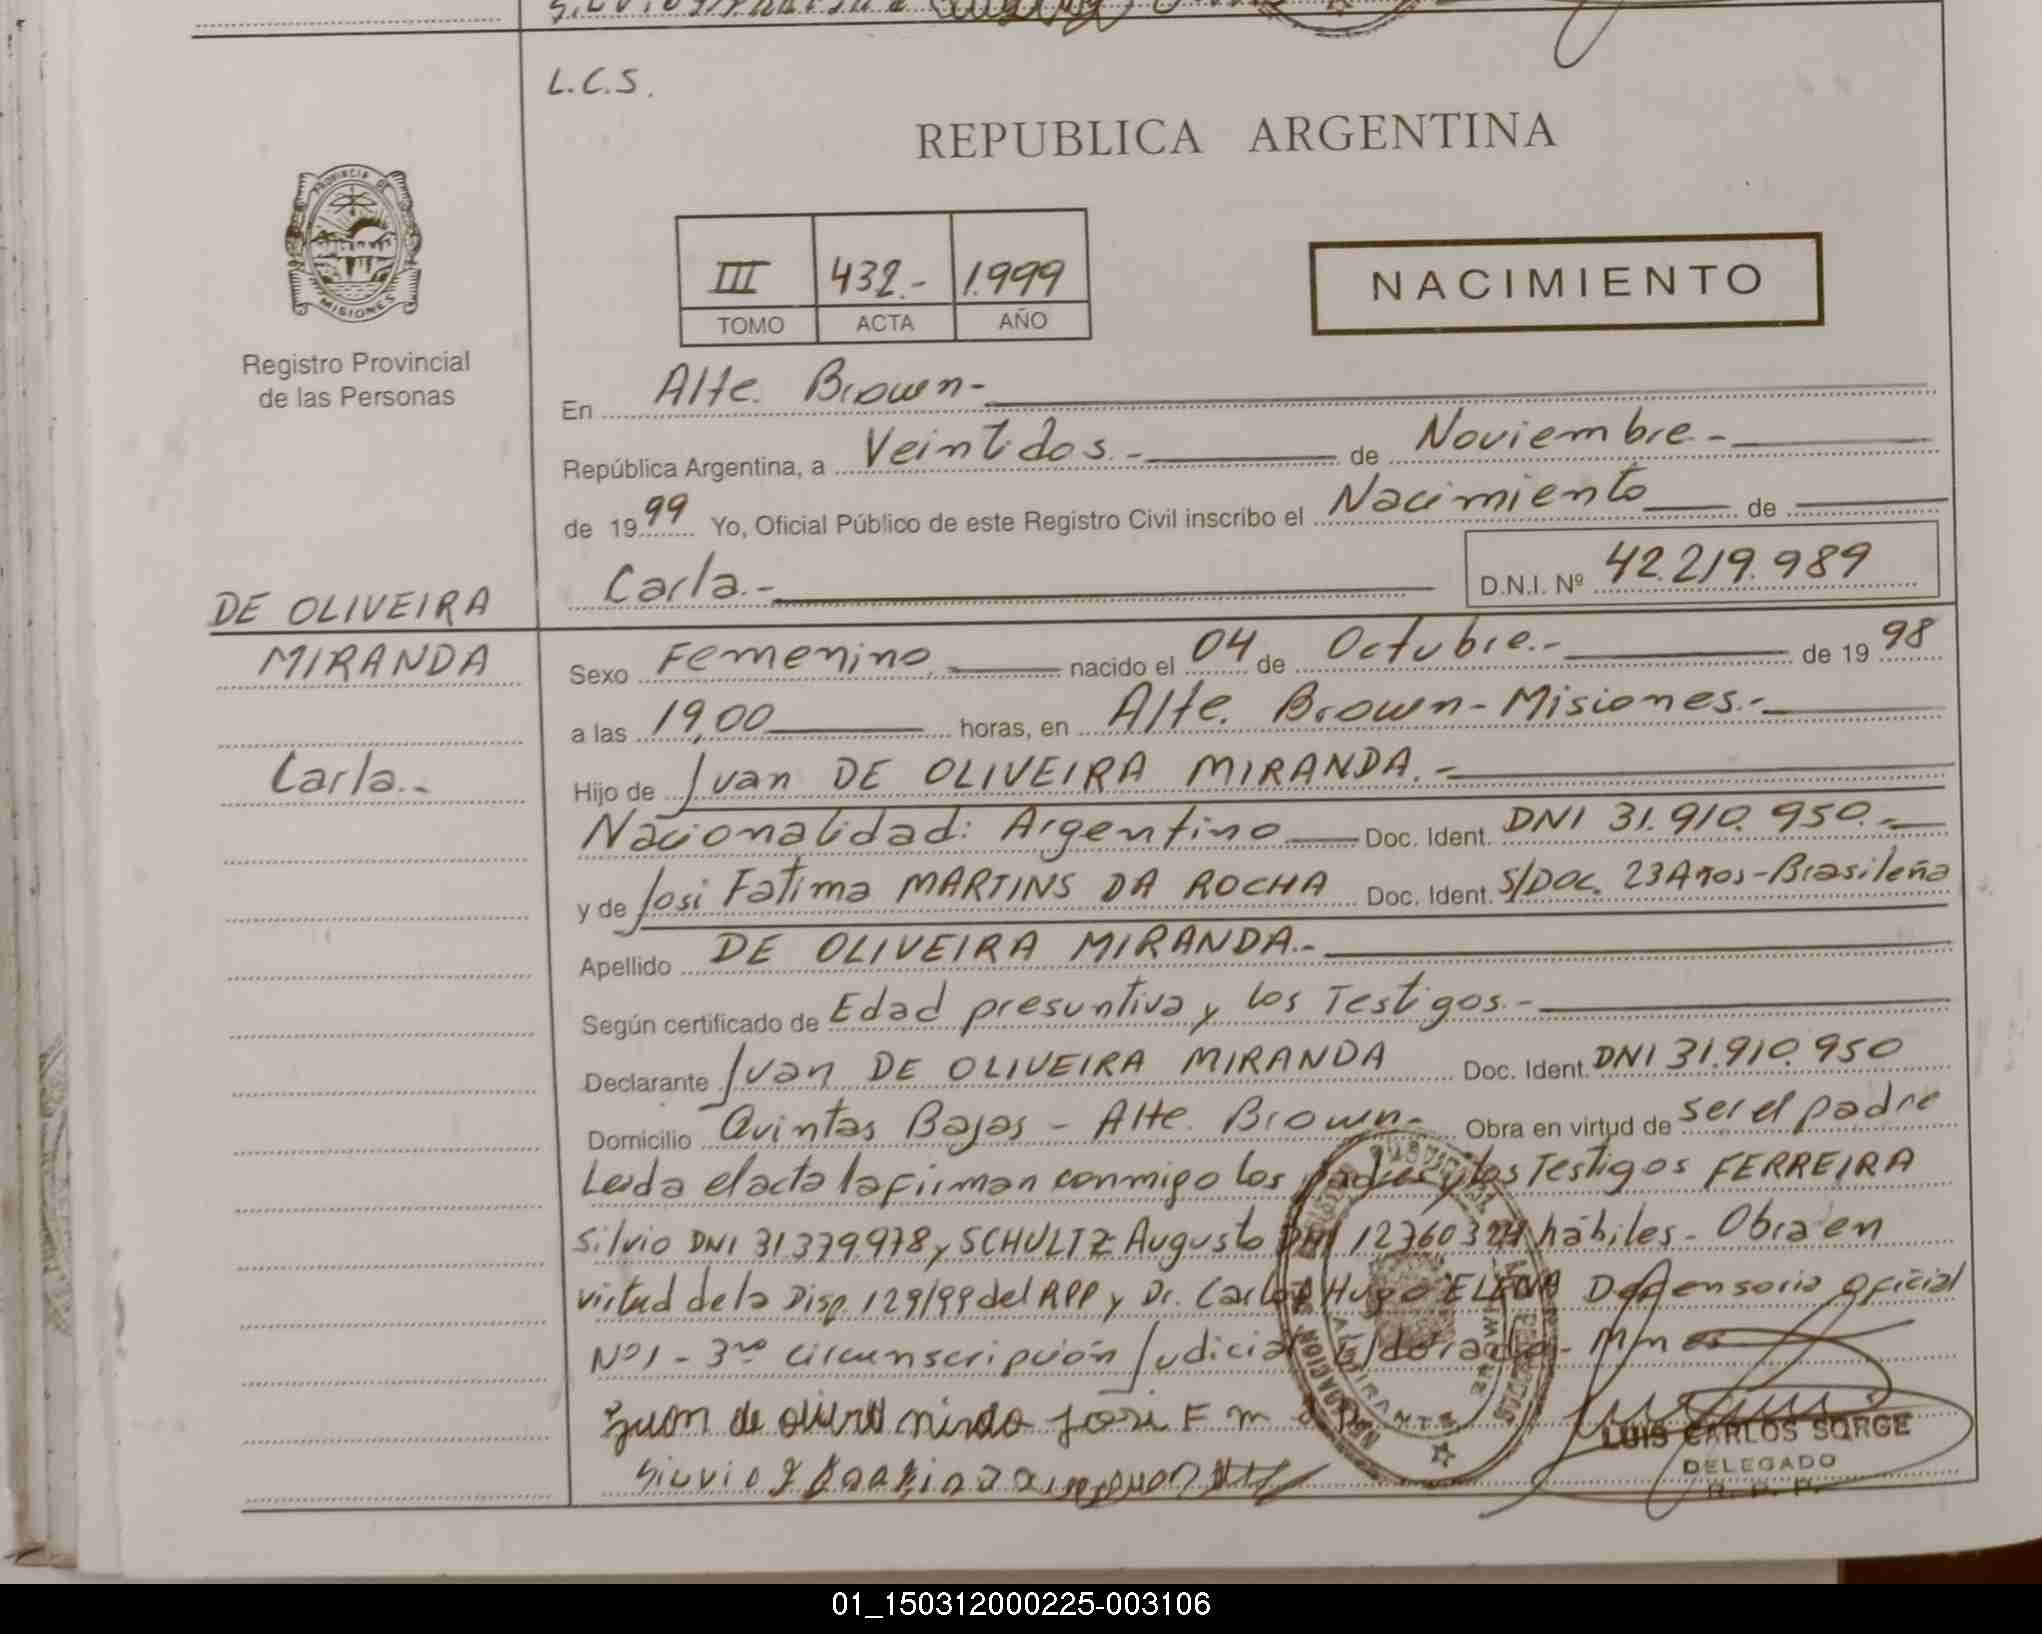 L.C.S.
REPUBLICA ARGENTINA
PROVINCIA DE
MISIONES
Registro Provincial
de las Personas
III 432.- 1.999
TOMO ACTA AÑO
NACIMIENTO
En Alte. Brown-
República Argentina, a Veintidos.- de Noviembre.-
de 1999 Yo, Oficial Público de este Registro Civil inscribo el Nacimiento de
Carla.- D.N.I. Nº 42.219.989
DE OLIVEIRA
MIRANDA
Carla.-
Sexo Femenino nacido el 04 de Octubre.- de 1998
a las 19,00 horas, en Alte. Brown-Misiones.-
Hijo de Juan DE OLIVEIRA MIRANDA.-
Nacionalidad: Argentino Doc. Ident. DNI 31.910.950.-
y de Josi Fatima MARTINS DA ROCHA Doc. Ident. S/DOC. 23 Años-Brasileña
Apellido DE OLIVEIRA MIRANDA.-
Según certificado de Edad presuntiva y los Testigos.-
Declarante Juan DE OLIVEIRA MIRANDA Doc. Ident. DNI 31.910.950
Domicilio Quintas Bajas - Alte. Brown- Obra en virtud de ser el padre
Leida el acta la firman conmigo los padres y los Testigos FERREIRA
Silvio DNI 31379.978 y SCHULTZ Augusto DNI hábiles- Obra en
virtud de la Disp. 129/99 del RPP y Dr. Carlos Hugo ELENA Defensoria Oficial
Nº1 - 3ra circunscripción Judicial Eldorado-
LUIS CARLOS SORGE
DELEGADO
R. P. P.
01_150312000225-003106